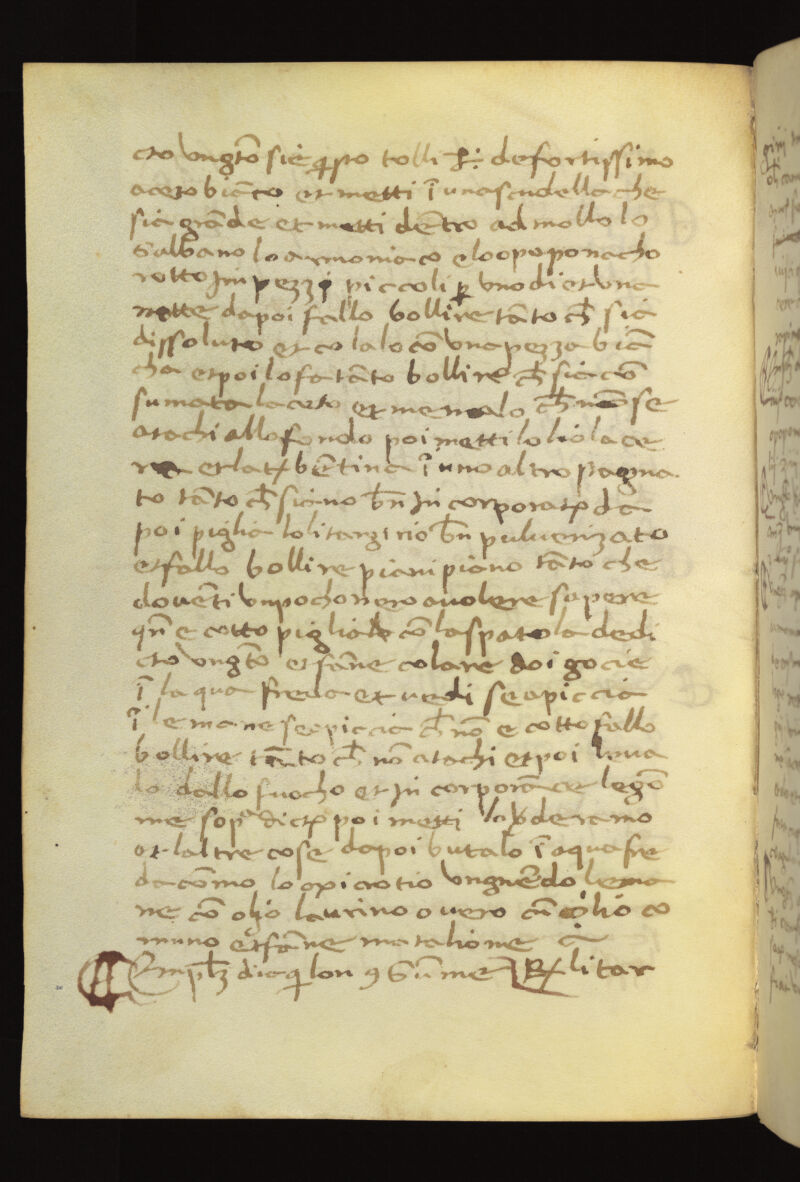 cto ungto sie qsto tolli ℔: de fortissimo
aceto biāco et metti ī una scudella che
sia grāde et metti dētro ad mollo lo
Galbano lo armoniaco e lo opoponacho
rotto Jm pezzi piccoli p uno di et una
notte dapoi fallo bollire tāto ch̄ sia
dissoluto et colalo cō una pezza biā
cha et poi lo fa tāto bollire ch̄ sia cō
sumata laceto et menalo ch̄ nō se
atachi allo fondo poi metti lo holio la ce
ra et la trbētina ī uno altro pagnia
to tāto ch̄ siano bn̄ Jncorporati da
poi piglia lo litargirio bn̄ puluerizato
et fallo bollire piani piano tāto che
douēti un pocho nero a uolere sapere
qn̄ e cotto piglialo cō la spatola de di
cto ungto et fāne colare doi gocie
ī laqua freda et uedi se apiccia
ī le mane se apiccia ch̄ nō e cotto fallo
bollire tāto ch̄ nō atachi et poi leua
lo dallo fuocho et Jncorporāce le gō
me sop dicte poi metti lo uderamo
et laltre cose dapoi butalo ī aqua fre
da cōmo lo opicrotio ungnēdo le ma
ne cō olio laurino o uero cū olio co
muno et fāne matalione
Emplz diaqilon 9 Gūme Rx litar